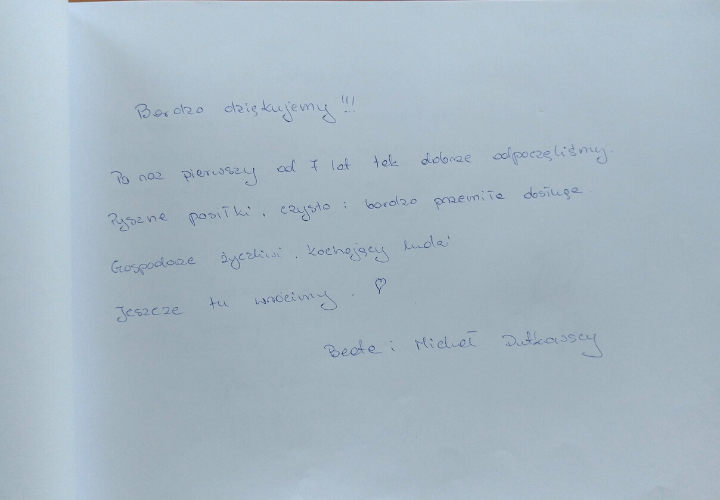 Bardzo dziękujemy!!!
Po raz pierwszy od 7 lat tak dobrze odpoczęliśmy.
Pyszne posiłki, czysto i bardzo przemiła obsługa.
Gospodarze życzliwi, kochający ludzi
Jeszcze tu wrócimy. ♡
Beata i Michał Dutkowscy